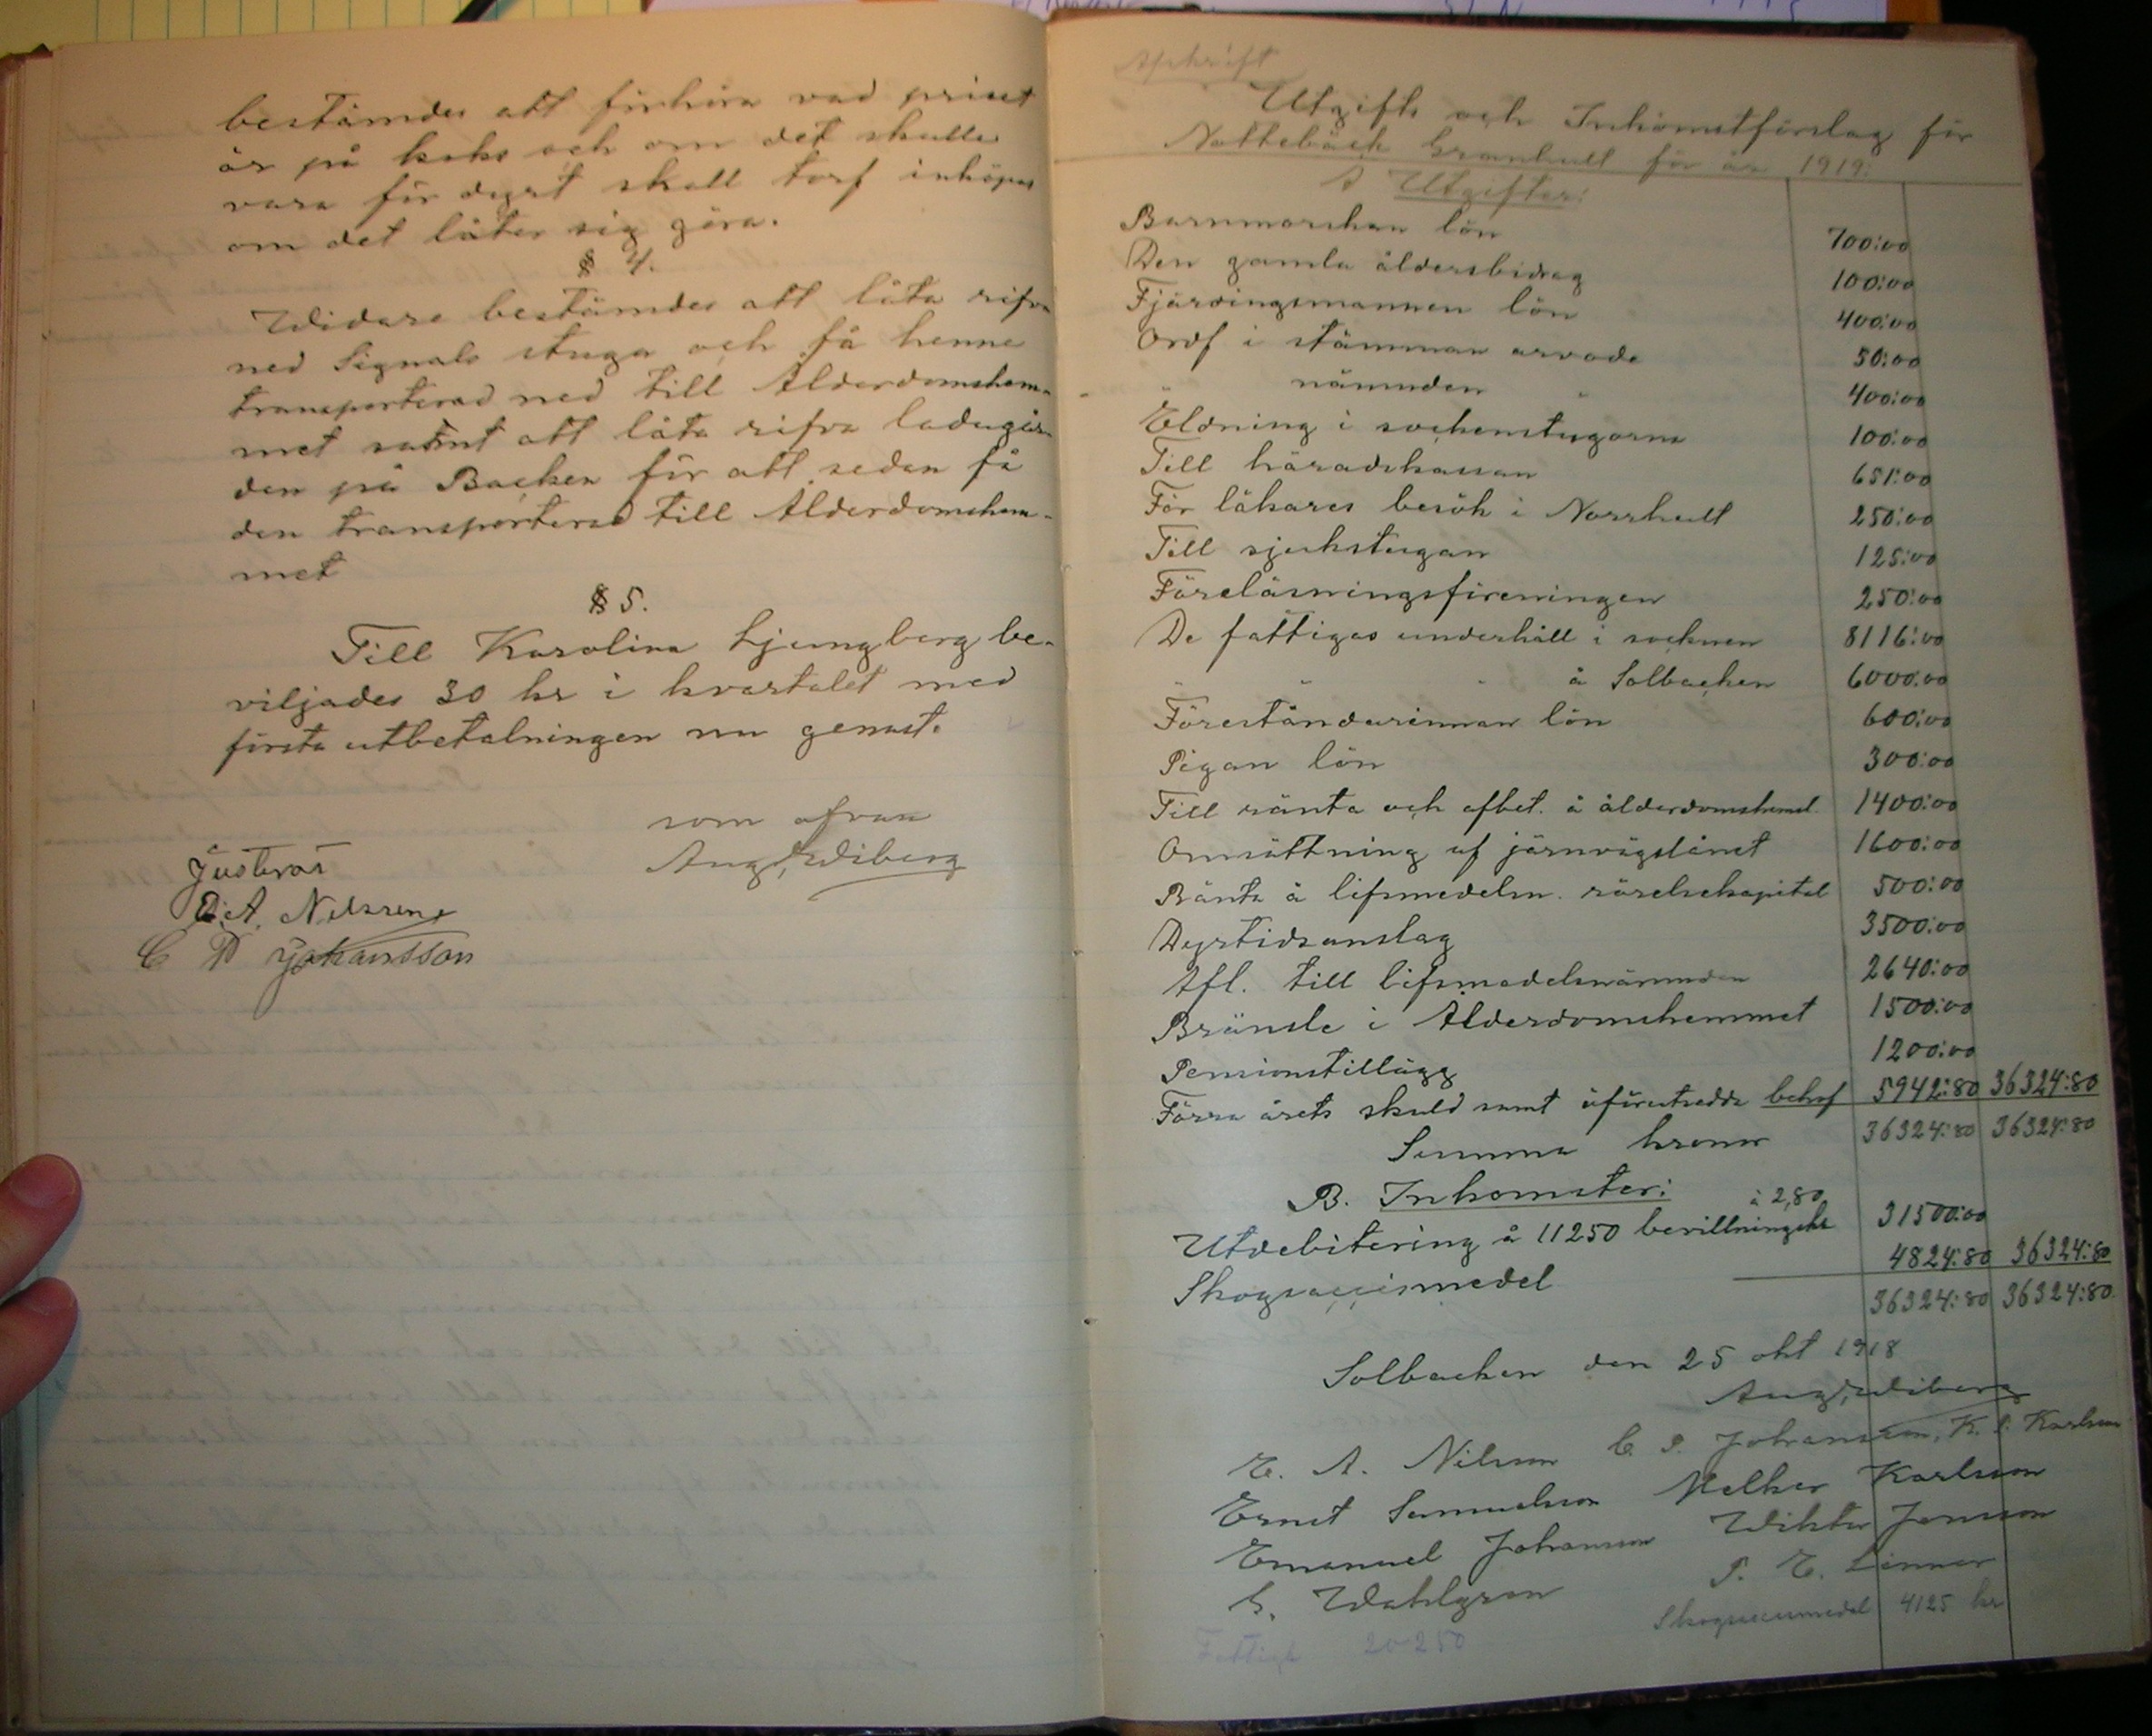 bestämdes att förhöra vad priset
är på koks och om det skulle
vara för dyrt skall torf inköpas
om det låter sig göra.
§ 4.
Widare bestämdes att låta rifva
ned Signals stuga och få henne
transporterad ned till Ålderdomshem-
met samt att låta rifva ladugår-
den på Backen för att sedan få
den transporterad till Ålderdomshem-
met
§ 5.
Till Karolina Ljungberg be-
viljades 30 kr i kvartalet med
första utbetalningen nu genast.
som ofvan
Aug. Wiberg
Justeras
E. A. Nilsson
C P Johansson
Afskrift
Utgifts och Inkomstförslag för
Nottebäck Granhult för år 1919:
A Utgifter:
Barnmorskan lön 700:00
Den gamla åldersbidrag 100:00
Fjärdingsmannen lön 400:00
Ordf i stämman arvode 50:00
" nämnden " 400:00
Eldning i sockenstugorna 100:00
Till häradskassan 651:00
För läkares besök i Norrhult 250:00
Till sjukstugan 125:00
Föreläsningsföreningen 250:00
De fattigas underhåll i socknen 8116:00
" " " å Solbacken 6000:00
Föreståndarinnan lön 600:00
Pigan lön 300:00
Till ränta och afbet. å ålderdomshemmet 1400:00
Omsättning af järnvägslånet 1600:00
Ränta å lifsmedelsn. rörelsekapital 500:00
Dyrtidsanslag 3500:00
Afl. till lifsmedelsnämnden 2640:00
Bränsle i Ålderdomshemmet 1500:00
Pensionstillägg 1200:00
Förra årets skuld samt oförutsedda behof 5942:80 36324:80
Summa kronor 36324:80 36324:80
B. Inkomster:
à 2,80
Utdebitering å 11250 bevillningskr 31500:00
Skogsaccismedel 4824:80 36324:80
36324:80 36324:80
Solbacken den 25 okt 1918
Aug. Wiberg
E. A. Nilsson C. P. Johansson, K. P. Karlsson
Ernst Samuelsson Melker Karlsson
Emanuel Johansson Wiktor Jonsson
G. Wahlgren P. E. Linner
Skogsaccismedel 4125 kr
Fattigh 20250